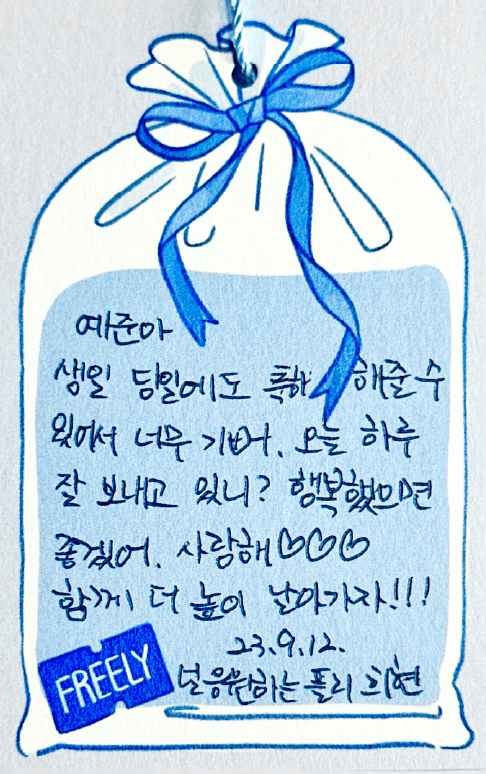 예준아
생일 당일에도 축하 해줄 수
있어서 너무 기뻐. 오늘 하루
잘 보내고 있니? 행복했으면
좋겠어. 사랑해♡♡♡
함께 더 높이 날아가자!!!
23.9.12.
널 응원하는 플리 희현
FREELY